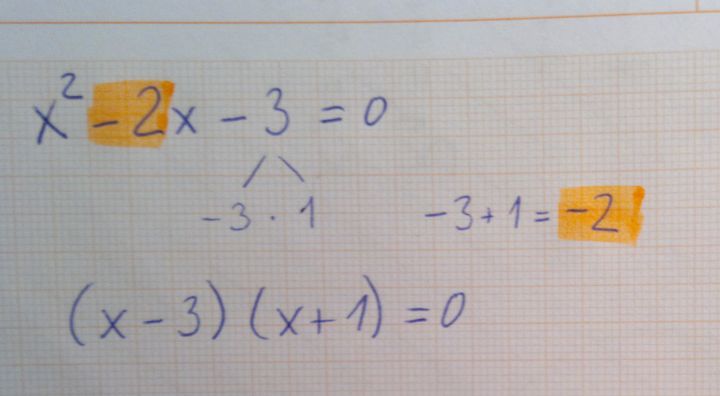 x² - 2x - 3 = 0
-3 · 1 -3 + 1 = -2
(x - 3) (x + 1) = 0